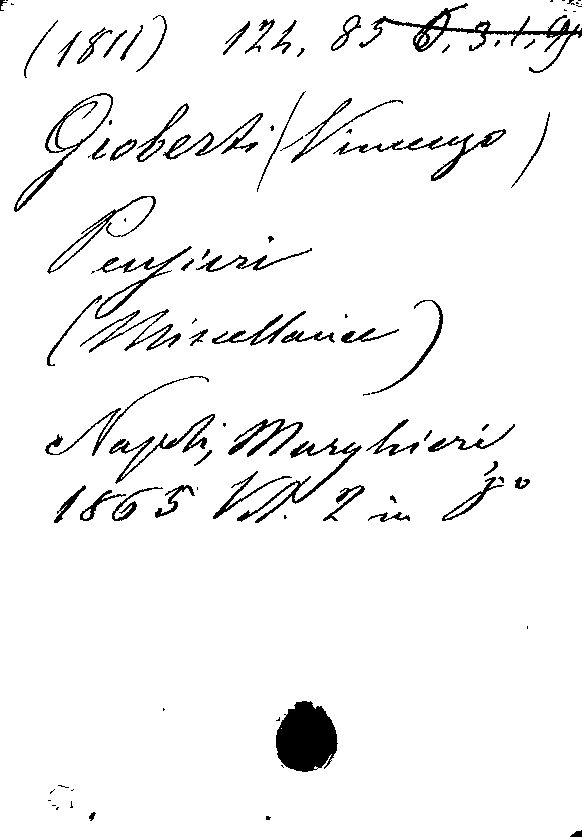 (1811) 124. 85 6.3.1.9
Gioberti (Vincenzo)
Pensieri
(Miscellanee)
Napoli, Marghieri
1865 Vol. 2 in 8º